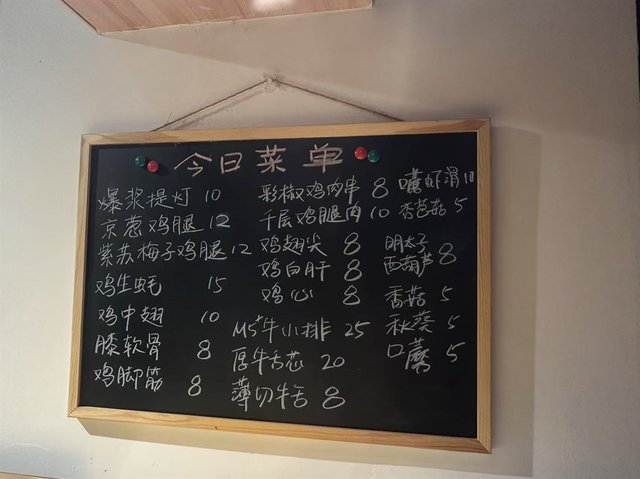 今日菜单
爆浆提灯 10
京葱鸡腿 12
紫苏梅子鸡腿 12
鸡生蚝 15
鸡中翅 10
膝软骨 8
鸡脚筋 8
彩椒鸡肉串 8
千层鸡腿肉 10
鸡翅尖 8
鸡白肝 8
鸡心 8
M5+牛小排 25
厚牛舌芯 20
薄切牛舌 8
虾滑
杏芭菇 5
明太子
西葫芦 8
香菇 5
秋葵 5
口蘑 5